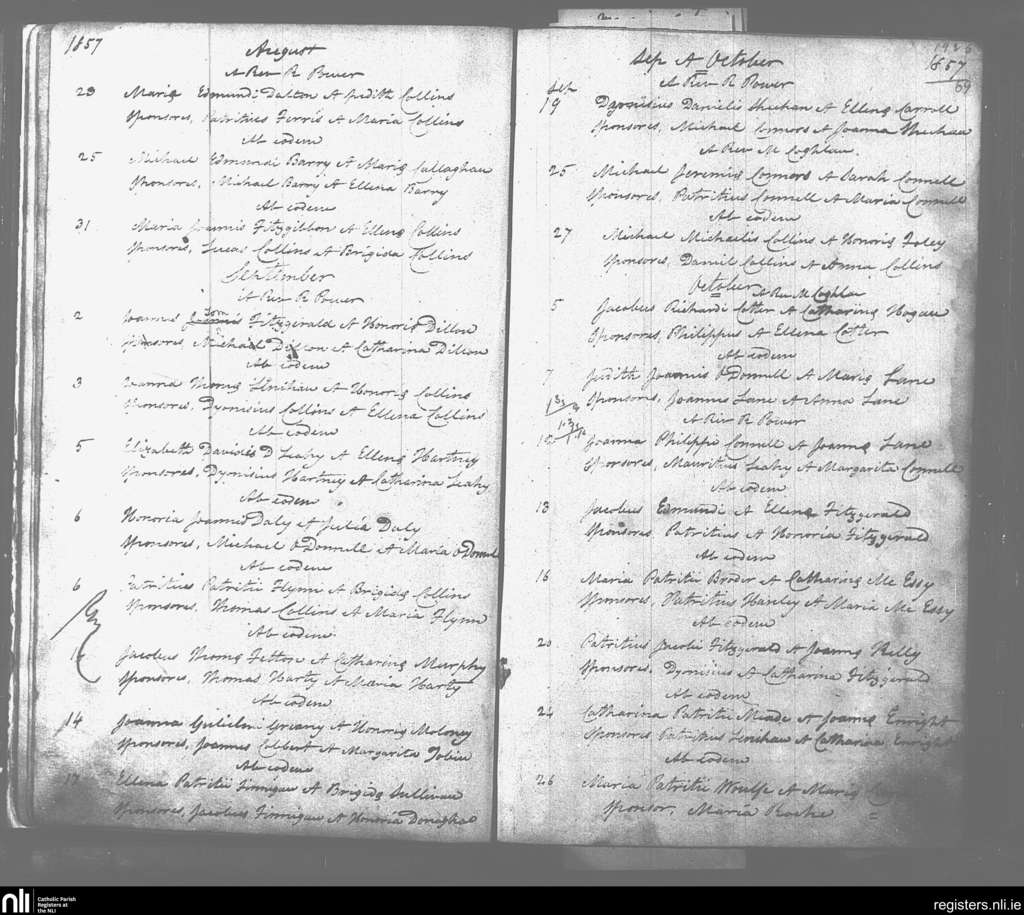 1857
August
A Rev R Power
23 Maria Edmundi Dalton A Judith Collins
Sponsores, Patritius Ferris A Maria Collins
Ab eodem
25 Michael Edmundi Barry A Maria Callaghan
Sponsores, Michael Barry A Ellena Barry
Ab eodem
31 Maria Joannis Fitzgibbon A Ellena Collins
Sponsores, Lucas Collins A Brigida Collins
September
A Rev R Power
2 Joannes Fitzgerald A Honoria Dillon
Sponsores, Michael Dillon A Catharina Dillon
Ab eodem
3 Joanna Thoma Linihan A Honora Collins
Sponsores, Dyonisius Collins A Ellena Collins
Ab eodem
5 Elizabeth Davidis D Leahy A Ellena Hartney
Sponsores, Dyonisius Hartney A Catharina Leahy
Ab eodem
6 Honoria Joannes Daly A Julia Daly
Sponsores, Michael O Donnell A Maria O Donnell
Ab eodem
6 Patritius Patritii Flynn A Brigida Collins
Sponsores, Thomas Collins A Maria Flynn
Ab eodem
Jacobus Thoma Fetton A Catharina Murphy
Sponsores, Thomas Harty A Maria Harty
Ab eodem
14 Joanna Gulielmi Greany A Honora Moloney
Sponsores, Joannes Colbert A Margarita Tobin
Ab eodem
17 Ellena Patritii Finnigan A Brigida Sullivan
Sponsores, Jacobus Finnigan A Honoria
1857
69
Sep A October
A Rev R Power
Sep
19 Dyonisius Danielis Sheehan A Ellena Carroll
Sponsores, Michael Connors A Joanna Sheehan
A Rev M Coghlan
25 Michael Jeremia Connors A Sarah Connell
Sponsores, Patritius Connell A Maria Connell
Ab eodem
27 Michael Michaelis Collins A Honoria Foley
Sponsores, Daniel Collins A Anna Collins
October A Rev M Coghlan
5 Jacobus Richardi Cotter A Catharina Hogan
Sponsores Philippus A Ellena Cotter
Ab eodem
7 Judith Joannis O Donnell A Maria Lane
Sponsores, Joannes Lane A Anna Lane
A Rev R Power
12 Joanna Philippi Connell A Joanna Lane
Sponsores, Mauritius Leahy A Margarita Connell
Ab eodem
13 Jacobus Edmundi A Ellena Fitzgerald
Sponsores Patritius A Honoria Fitzgerald
Ab eodem
16 Maria Patritii Broder A Catharina Mc Essy
Sponsores, Patritius Hanley A Maria Mc Essy
Ab eodem
20 Patritius Jacobi Fitzgerald A Joanna Kelly
Sponsores, Dyonisius A Catharina Fitzgerald
Ab eodem
24 Catharina Patritii Meade A Joanna Enright
Sponsores Patritius A Catharina Enright
Ab eodem
26 Maria Patritii Woulfe A Maria
Sponsor, Maria Roche
nli
Catholic Parish
Registers at
the NLI
registers.nli.ie